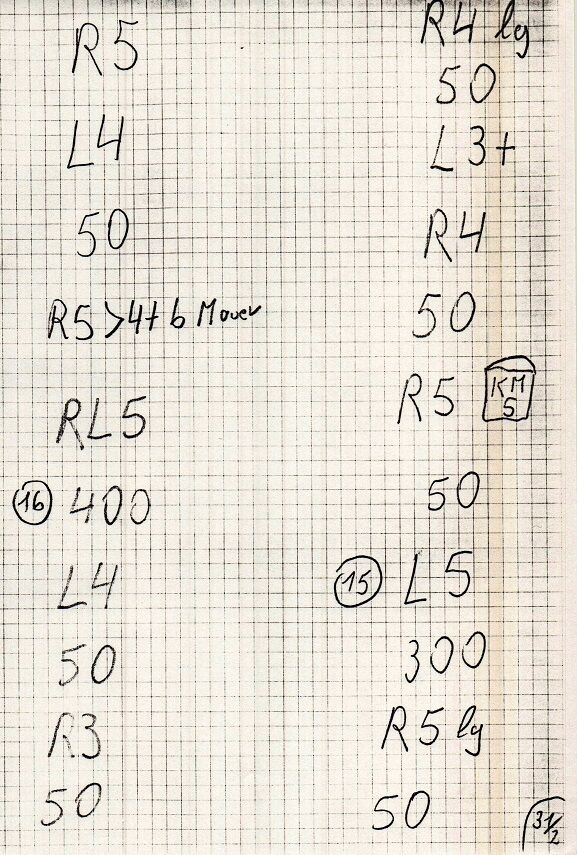 R5
L4
50
R5 >4+ b Mauer
RL5
16 400
L4
50
R3
50
R4 lg
50
L3+
R4
50
R5 KM
5
50
15 L5
300
R5 lg
50
31/2